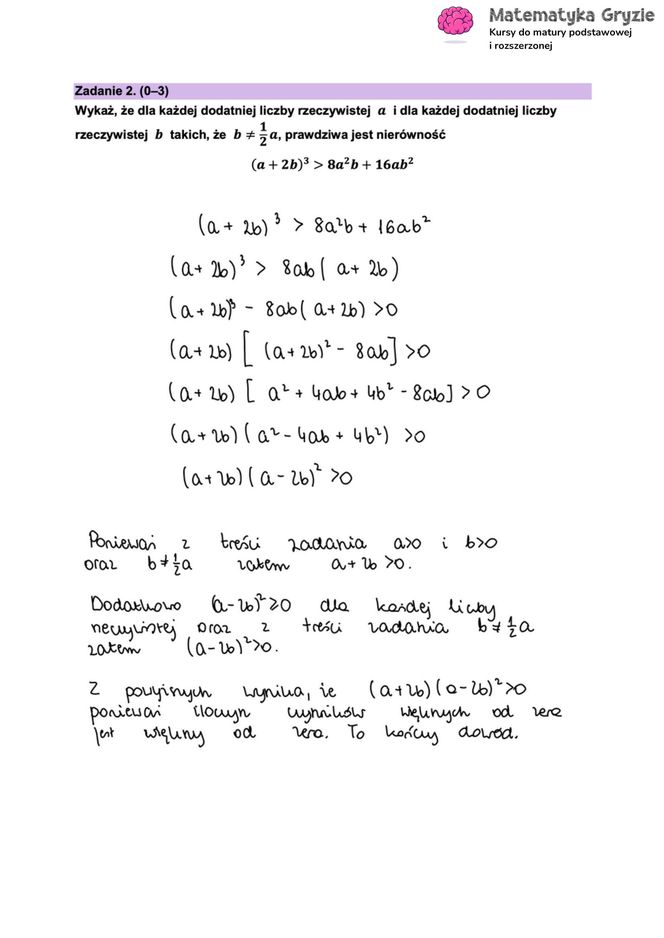 Matematyka Gryzie
Kursy do matury podstawowej
i rozszerzonej
Zadanie 2. (0–3)
Wykaż, że dla każdej dodatniej liczby rzeczywistej a i dla każdej dodatniej liczby
rzeczywistej b takich, że b ≠ 1/2 a, prawdziwa jest nierówność
(a + 2b)³ > 8a²b + 16ab²
(a + 2b)³ > 8a²b + 16ab²
(a + 2b)³ > 8ab(a + 2b)
(a + 2b)³ - 8ab(a + 2b) > 0
(a + 2b) [(a + 2b)² - 8ab] > 0
(a + 2b) [a² + 4ab + 4b² - 8ab] > 0
(a + 2b)(a² - 4ab + 4b²) > 0
(a + 2b)(a - 2b)² > 0
Ponieważ z treści zadania a>0 i b>0
oraz b ≠ 1/2 a zatem a + 2b > 0.
Dodatkowo (a - 2b)² ≥ 0 dla każdej liczby
rzeczywistej oraz z treści zadania b ≠ 1/2 a
zatem (a - 2b)² > 0.
Z powyższych wynika, że (a + 2b)(a - 2b)² > 0
ponieważ iloczyn czynników większych od zera
jest większy od zera. To kończy dowód.